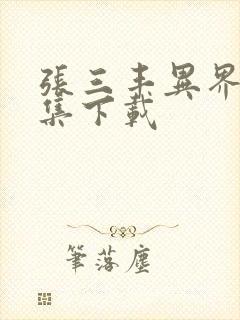 張三丰異界
集下載
筆落塵